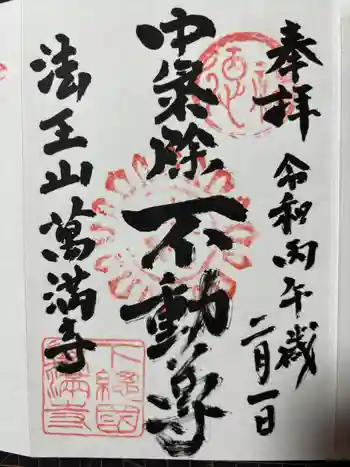 奉拝
令和丙午歳
二月一日
中気除不動尊
法王山萬満寺